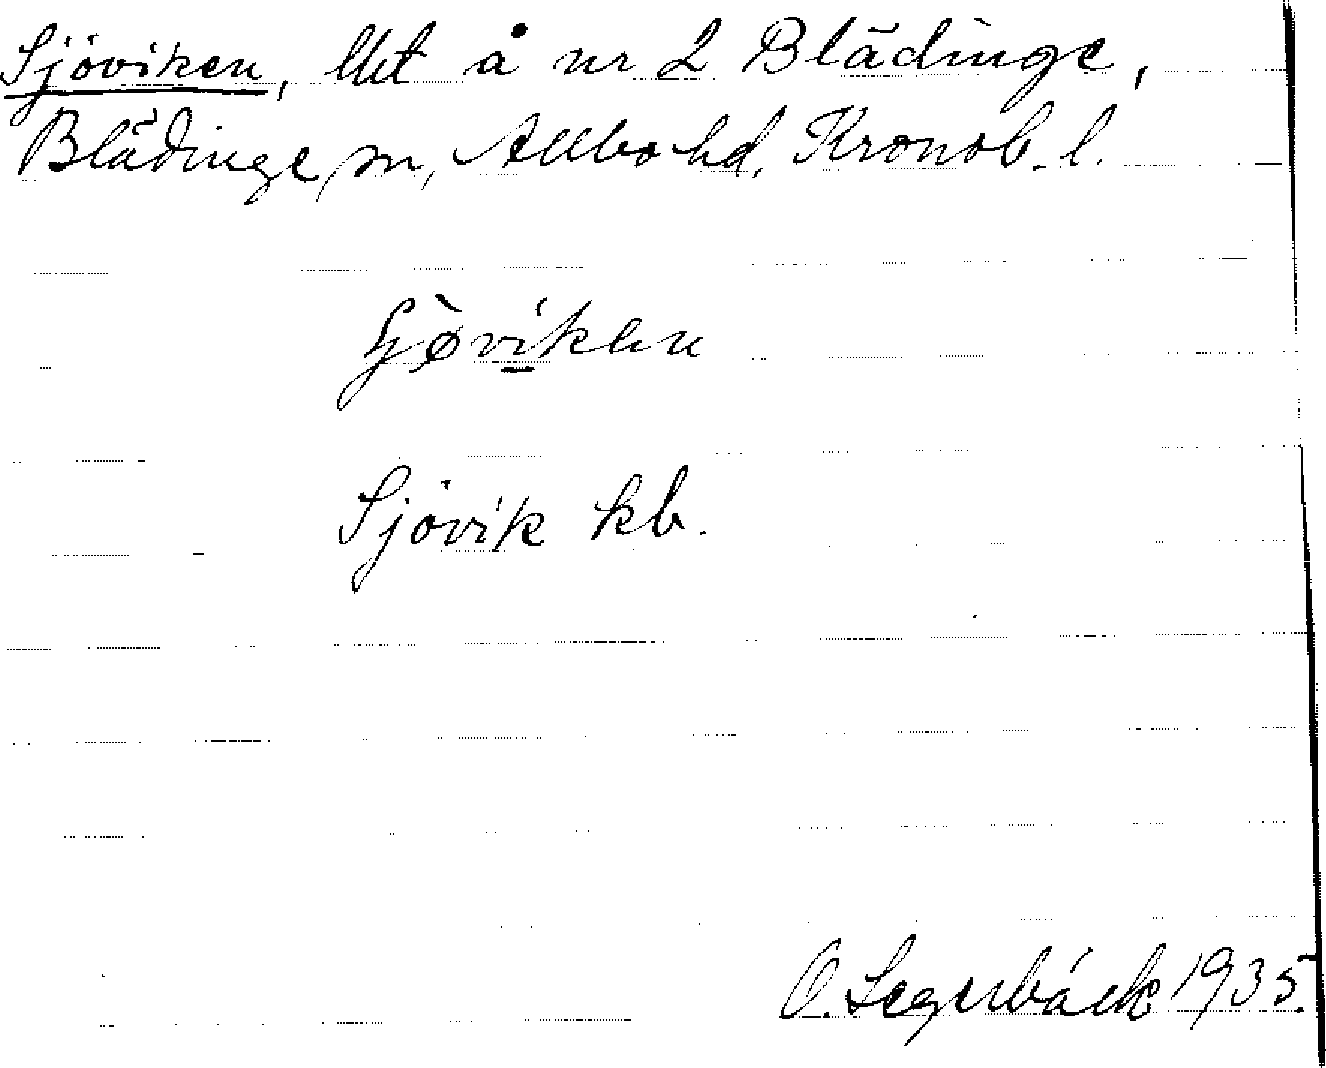 Sjöviken, lht å nr 2 Blädinge,
Blädinge sn, Allbo hd, Kronob. l.
Sjöviken
Sjövik kb.
O. Segerbäck 1935.